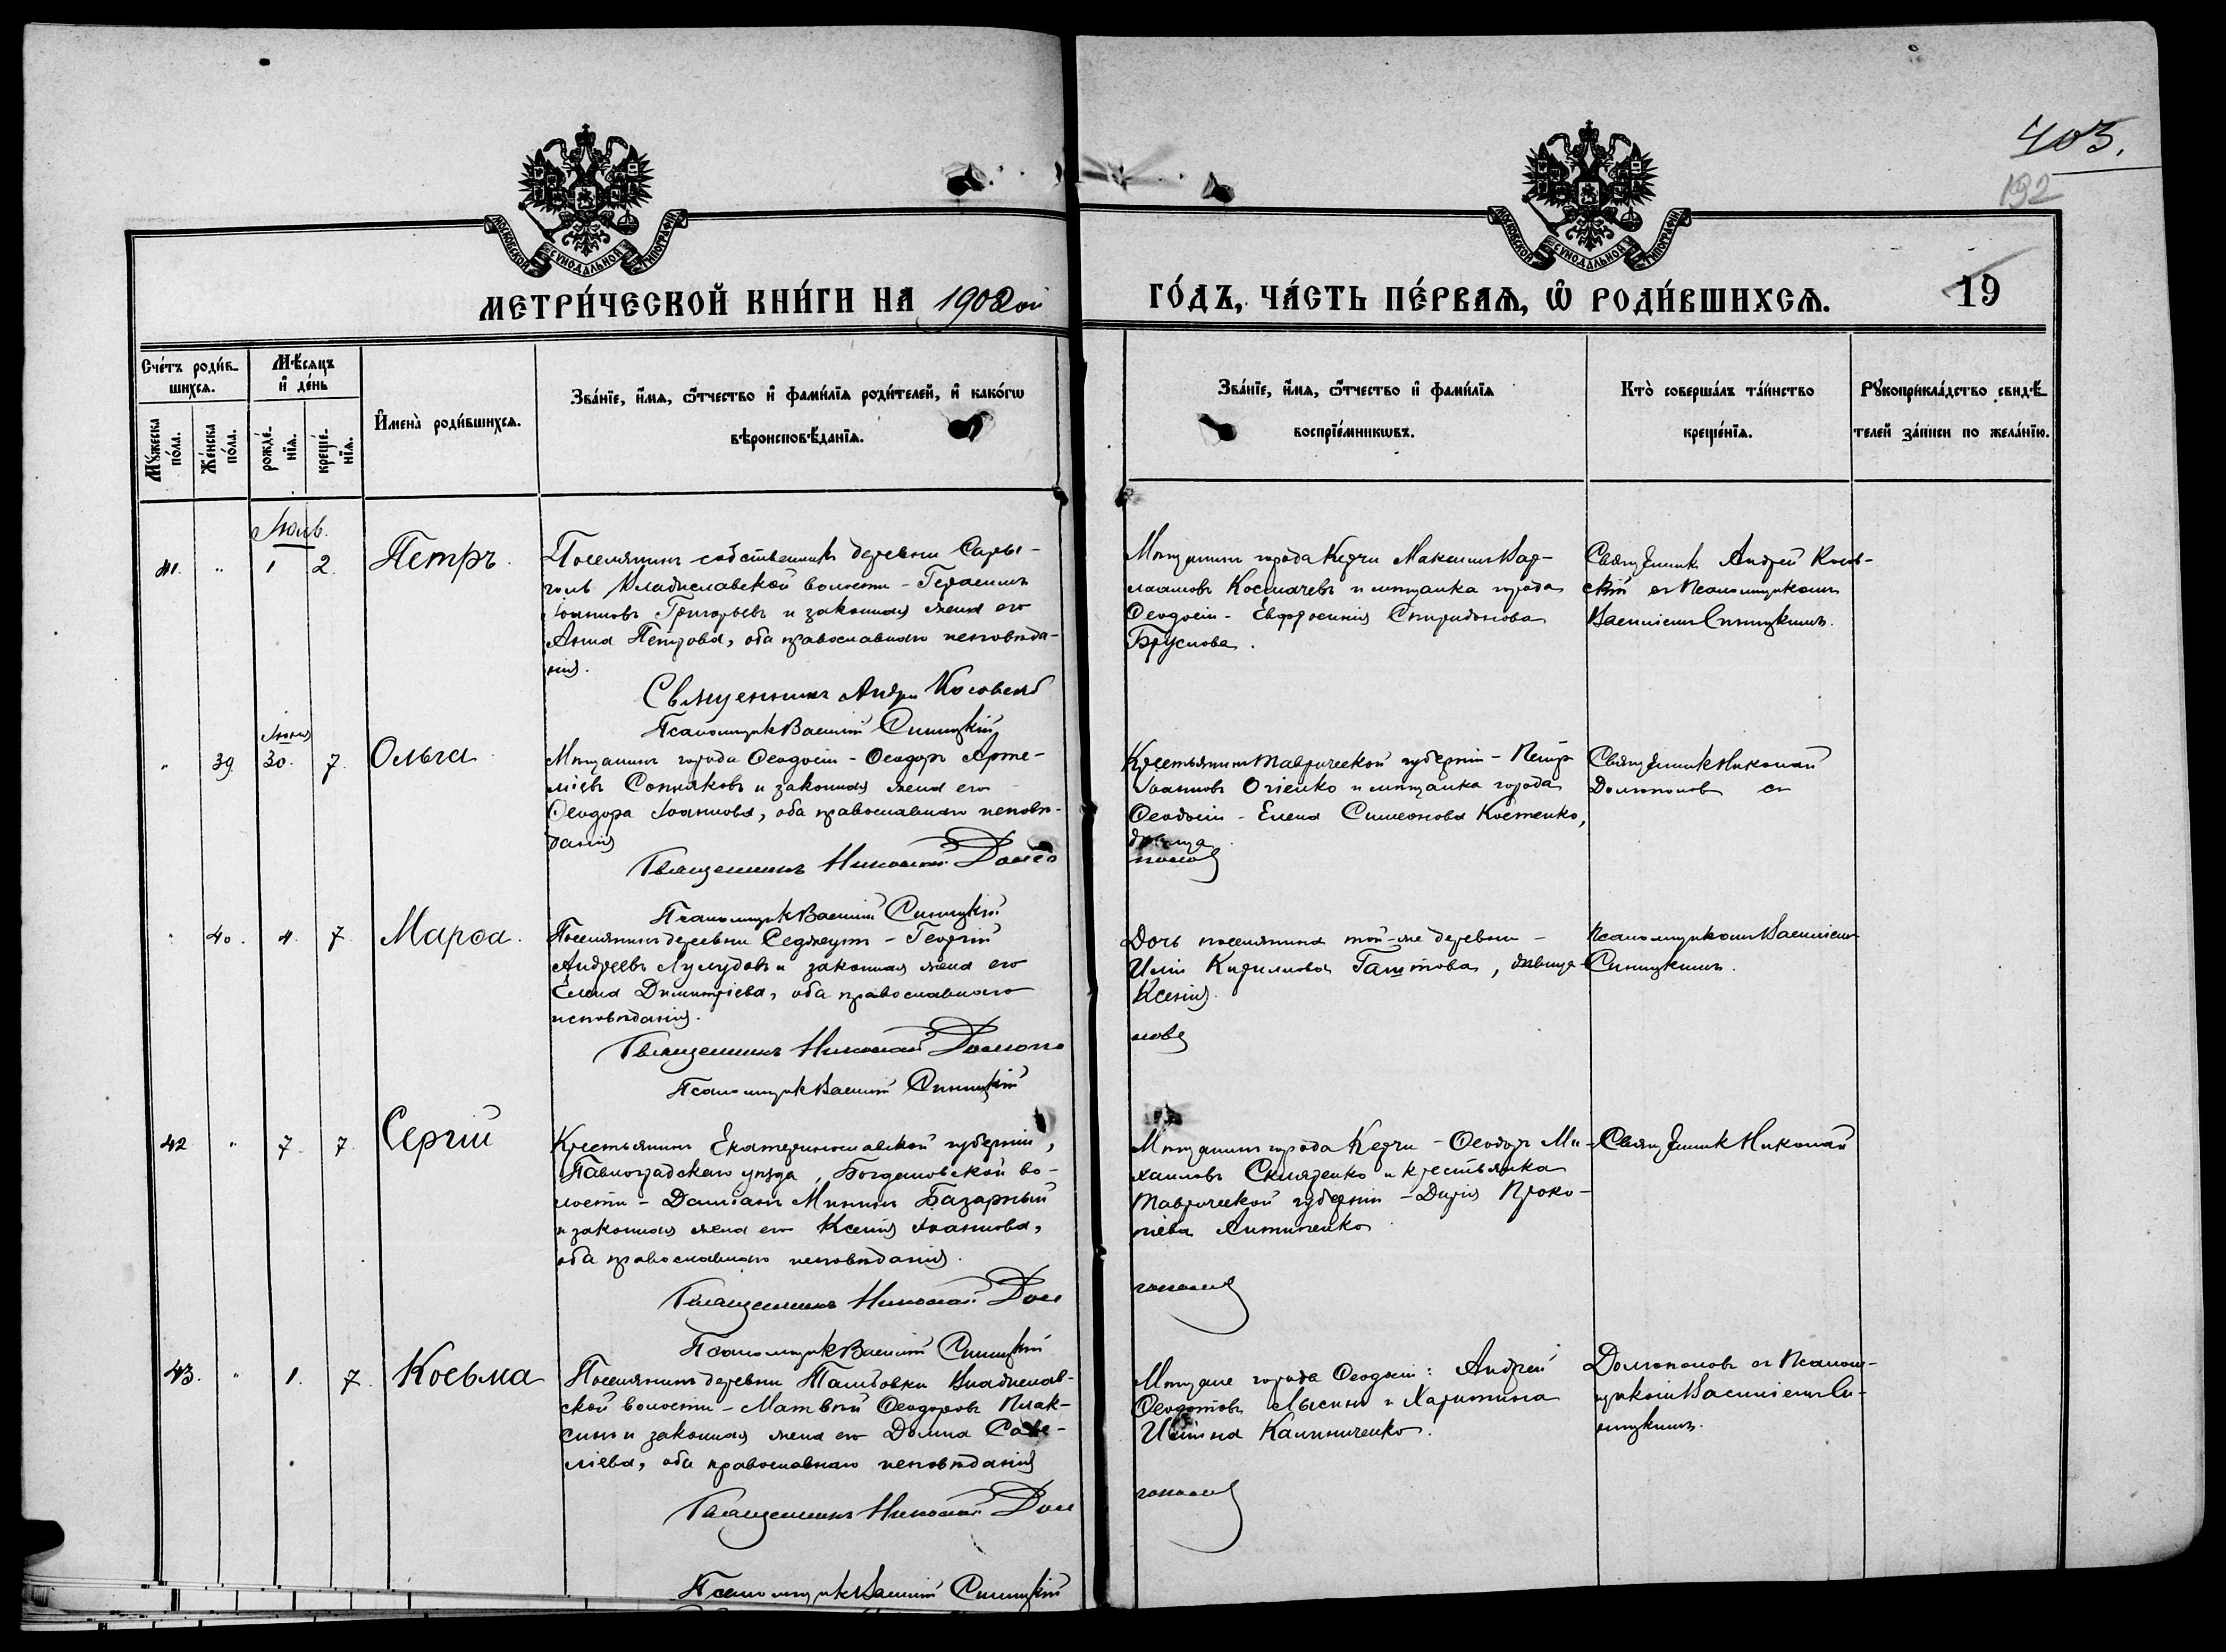 403.
192
МОСКОВСКОЙ СѴНОДАЛЬНОЙ ТИПОГРАФІИ
МОСКОВСКОЙ СѴНОДАЛЬНОЙ ТИПОГРАФІИ
МЕТРИ́ЧЕСКОЙ КНИ́ГИ НА 1902ой ГО́ДЪ, ЧА́СТЬ ПЕ́РВАѦ, Ѽ РОДИ́ВШИХСѦ. 19
Сче́тъ роди́в-
шихсѧ.
Мꙋ́жеска по́ла.
Же́нска по́ла.
Мѣ́сѧцъ и҆ де́нь
рожде́-нїѧ.
креще́-нїѧ.
И҆мена̀ роди́вшихсѧ.
Зва́нїе, и҆́мѧ, ѻ҆́тчество и҆ фами́лїѧ роди́телей, и҆ како́гѡ
вѣроисповѣ́данїѧ.
Зва́нїе, и҆́мѧ, ѻ҆́тчество и҆ фами́лїѧ
воспрїе́мникѡвъ.
Кто̀ соверша́лъ та́инство
креще́нїѧ.
Рꙋкоприкла́дство свидѣ́-
телей за́писи по жела́нїю.
Іюль.
41. " 1 2. Петръ.
Поселянинъ собственникъ деревни Сары-
голь Владиславской волости - Герасимъ
Іоанновъ Григорьевъ и законная жена его
Анна Петрова, оба православнаго исповѣда-
нія.
Священникъ Андрей Косовскій
Псаломщикъ Василій Синицкій
Мѣщанинъ города Керчи Максимъ Вар-
лаамовъ Космачевъ и мѣщанка города
Ѳеодосіи - Евфросинія Спиридонова
Бруслова.
Священникъ Андрей Косов-
скій съ Псаломщикомъ
Василіемъ Синицкимъ.
Іюня
" 39. 30. 7. Ольга
Мѣщанинъ города Ѳеодосіи - Ѳеодоръ Арте-
міевъ Сопляковъ и законная жена его
Ѳеодора Іоаннова, оба православнаго исповѣ-
данія
Священникъ Николай Долго
половъ
Псаломщикъ Василій Синицкій
Крестьянинъ Таврической губерніи - Петръ
Іоанновъ Огіенко и мѣщанка города
Ѳеодосіи - Елена Симеонова Костенко,
дѣвица.
Священникъ Николай
Долгополовъ съ
" 40. 4. 7. Марѳа.
Поселянинъ деревни Седжеутъ - Георгій
Андреевъ и законная жена его
Елена Димитріева, оба православнаго
исповѣданія.
Священникъ Николай Долгопо
ловъ
Псаломщикъ Василій Синицкій
Дочь поселянина той-же деревни -
Иліи Кириллова, дѣвица
Ксенія.
Псаломщикомъ Василіемъ
Синицкимъ.
42 " 7. 7. Сергій
Крестьянинъ Екатеринославской губерніи,
Павлоградскаго уѣзда, Богдановской во-
лости - Даміанъ Мининъ Базарный
и законная жена его Ксенія Іоаннова,
оба православнаго исповѣданія.
Священникъ Николай Дол
гополовъ
Псаломщикъ Василій Синицкій
Мѣщанинъ города Керчи - Ѳеодоръ Ми-
хаиловъ Скляренко и крестьянка
Таврической губерніи - Дарія Проко-
піева Антипенко
Священникъ Николай
43. " 1. 7. Косьма
Поселянинъ деревни Тамбовки Владислав-
ской волости - Матвѣй Ѳеодоровъ Плак-
синъ и законная жена его Домна Саве-
ліева, оба православнаго исповѣданія
Священникъ Николай Дол
гополовъ
Псаломщикъ Василій Синицкій
Мѣщане города Ѳеодосіи: Андрей
Ѳеодотовъ Лысинъ и Харитина
Калиниченко.
Долгополовъ съ Псалом-
щикомъ Василіемъ Си-
ницкимъ.